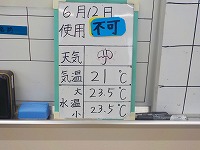 6月12日
使用 不可
天気
気温 21℃
大 23.5℃
水温
小 23.5℃